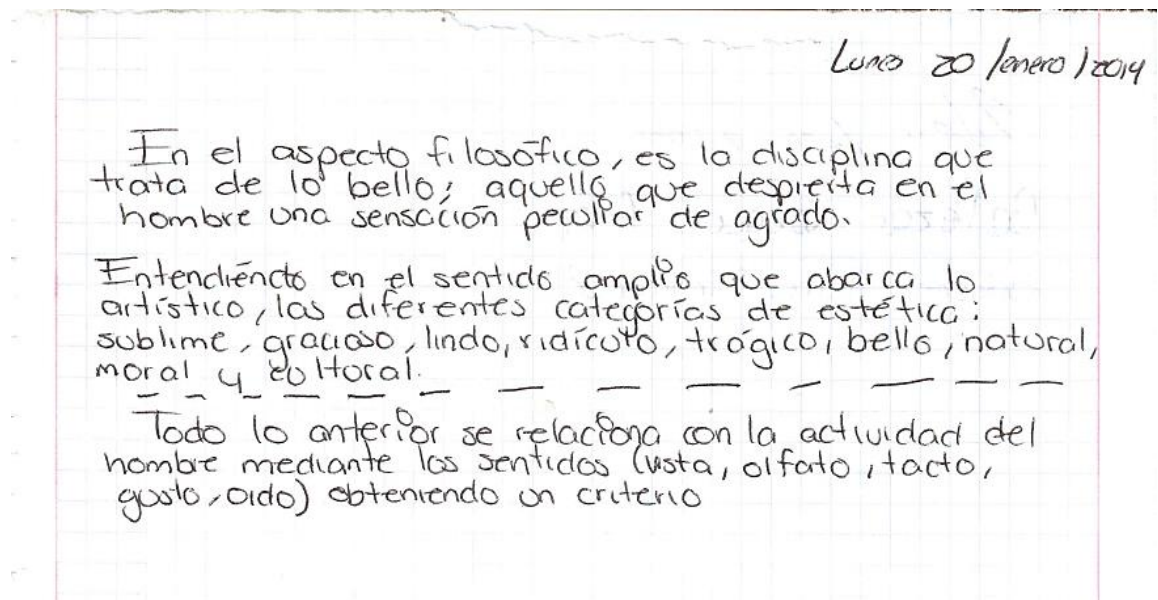 Lunes 20 /enero/2014
En el aspecto filosófico, es la disciplina que
trata de lo bello; aquello que despierta en el
hombre una sensación peculiar de agrado.
Entendiéndo en el sentido amplio que abarca lo
artístico, las diferentes categorías de estética:
sublime, gracioso, lindo, ridículo, trágico, bello, natural,
moral y cultural.
Todo lo anterior se relaciona con la actividad del
hombre mediante los sentidos (vista, olfato, tacto,
gusto, oido) obteniendo un criterio